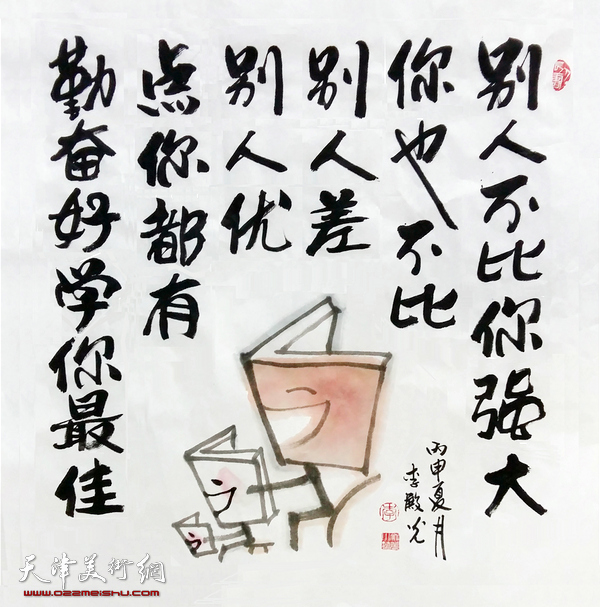 别人不比你强大
你也不比
别人差
别人优
点你都有
勤奋好学你最佳
丙申夏月
李殿光
天津美術網
www.022meishu.com